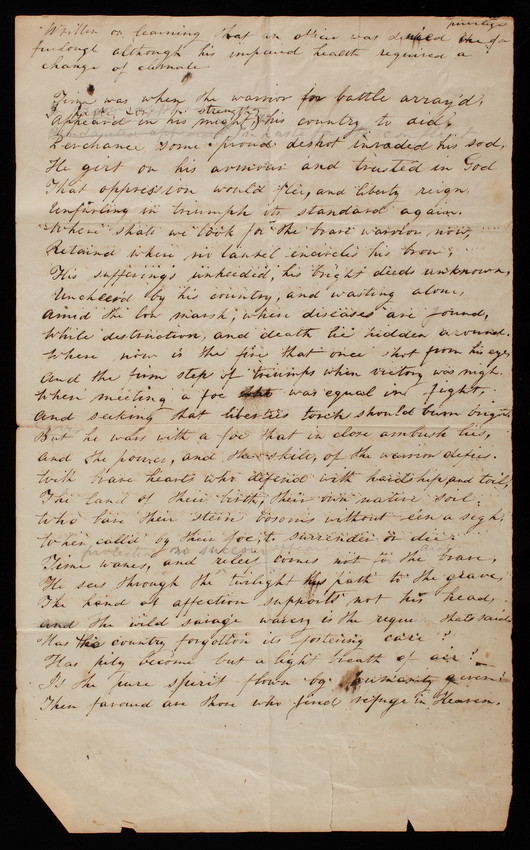 Written on learning that an officer was denied the privilege of a
furlough although his impaired health required a
change of climate
Time was when the warrior for battle array'd,
strength
Appeared in his might his country to aid,
Perchance some proud despot invaded his sod,
He girt on his armour and trusted in God
That oppression would flee, and liberty reign
Unfurling in triumph its standard again.
Where shall we look for the brave warrior, now,
Retained where no laurel encircles his brow,
His sufferings unheeded, his bright deeds unknown,
Uncheered by his country, and wasting alone,
Amid the low marsh, where diseases are found,
While destruction, and death lie hidden around.
Where now is the fire that once shot from his eye,
And the firm step of triumps when victory was nigh.
When meeting a foe who was equal in fight,
And seeking that liberties torch should burn bright
But he wars with a foe that in close ambush lies,
And the power, and the skill, of the warrior defies.
With brave hearts who defend with hardship and toil,
The land of their birth, their own native soil:
Who bare their stern bosoms without e'en a sigh,
When call'd by their foe to surrender or die:
protection no succour
Time wanes, and relief comes not to the brave,
He sees through the twilight his path to the grave,
The hand of affection supports not his head
And the wild savage warcry is the requiem that's said
Has the country forgotten its fostering care?
Has pity become but a light breath of air?
Is the pure spirit flown by humanity given?
Then favourd are those who find refuge in Heaven.